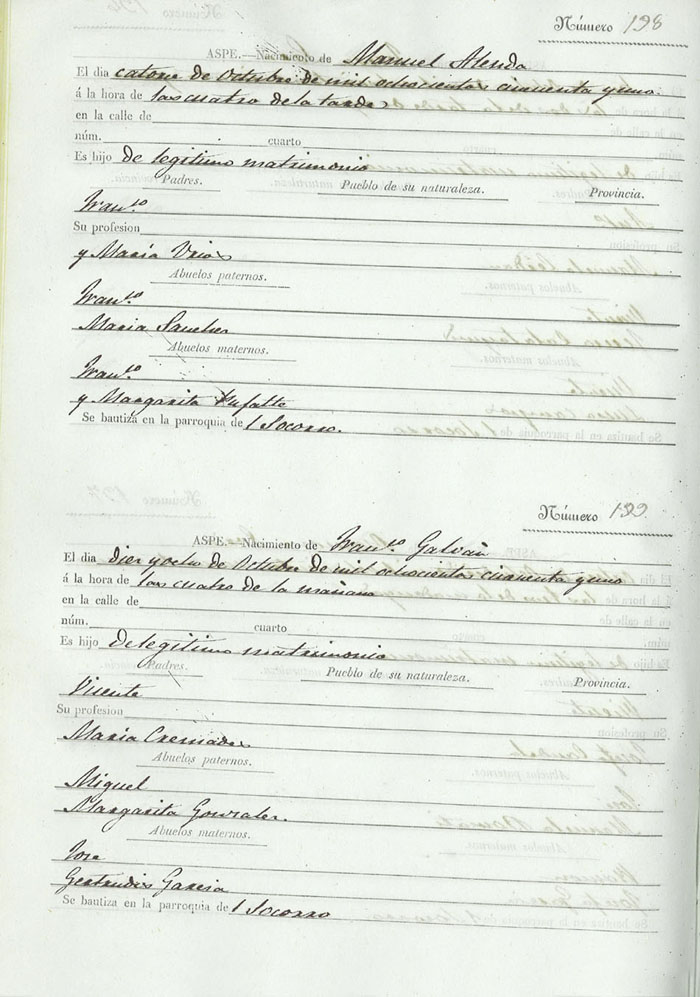 Número 198
ASPE.—Nacimiento de Manuel Alenda
El dia catorce de Octubre de mil ochocientos cincuenta y uno.
á la hora de las cuatro de la tarde
en la calle de
núm. cuarto
Es hijo de legitimo matrimonio
Padres. Pueblo de su naturaleza. Provincia.
Fran.co
Su profesion
y Maria
Abuelos paternos.
Fran.co
Maria Sanchez
Abuelos maternos.
Fran.co
y Margarita
Se bautiza en la parroquia del Socorro.
Número 199
ASPE.—Nacimiento de Fran.co Galvañ
El dia diez y ocho de Octubre de mil ochocientos cincuenta y uno
á la hora de las cuatro de la mañana
en la calle de
núm. cuarto
Es hijo de legitimo matrimonio
Padres. Pueblo de su naturaleza. Provincia.
Vicente
Su profesion
Maria Cremades
Abuelos paternos.
Miguel
Margarita Gonzalez.
Abuelos maternos.
Jose
Gertrudis Garcia
Se bautiza en la parroquia del Socorro